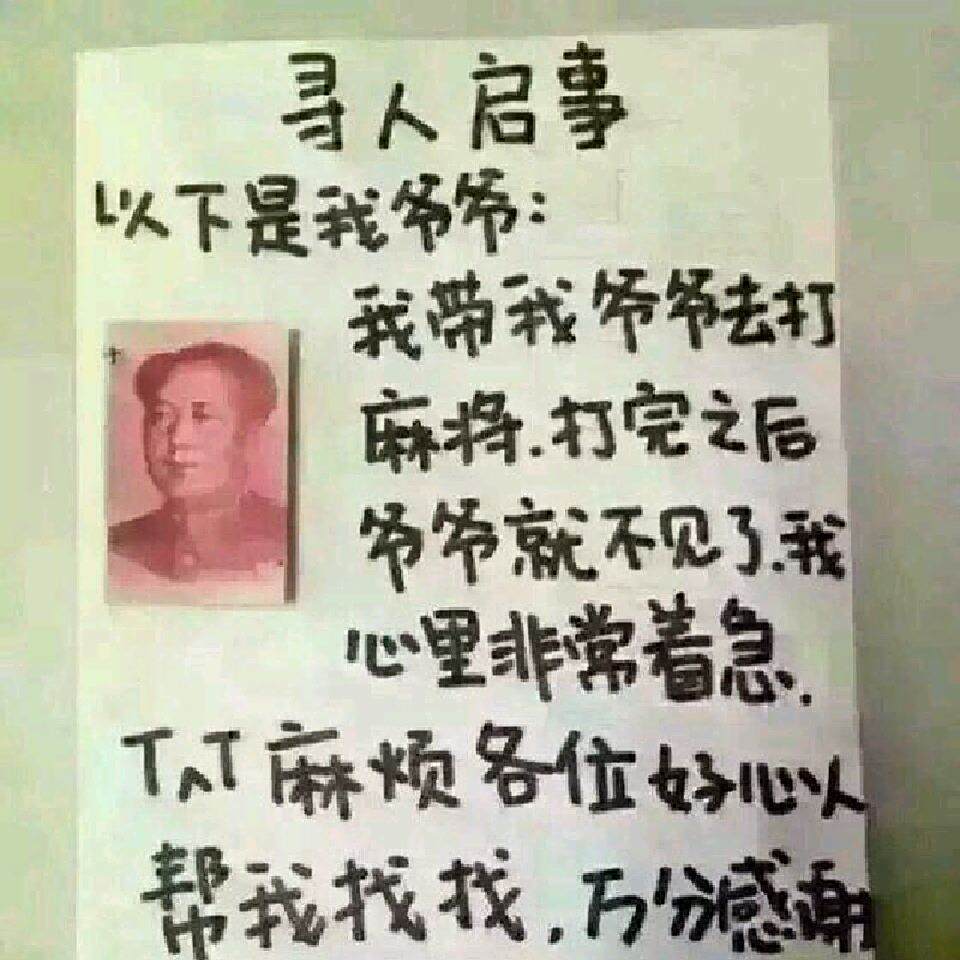 寻人启事
以下是我爷爷:
我带我爷爷去打
麻将.打完之后
爷爷就不见了.我
心里非常着急.
T^T麻烦各位好心人
帮我找找,万分感谢